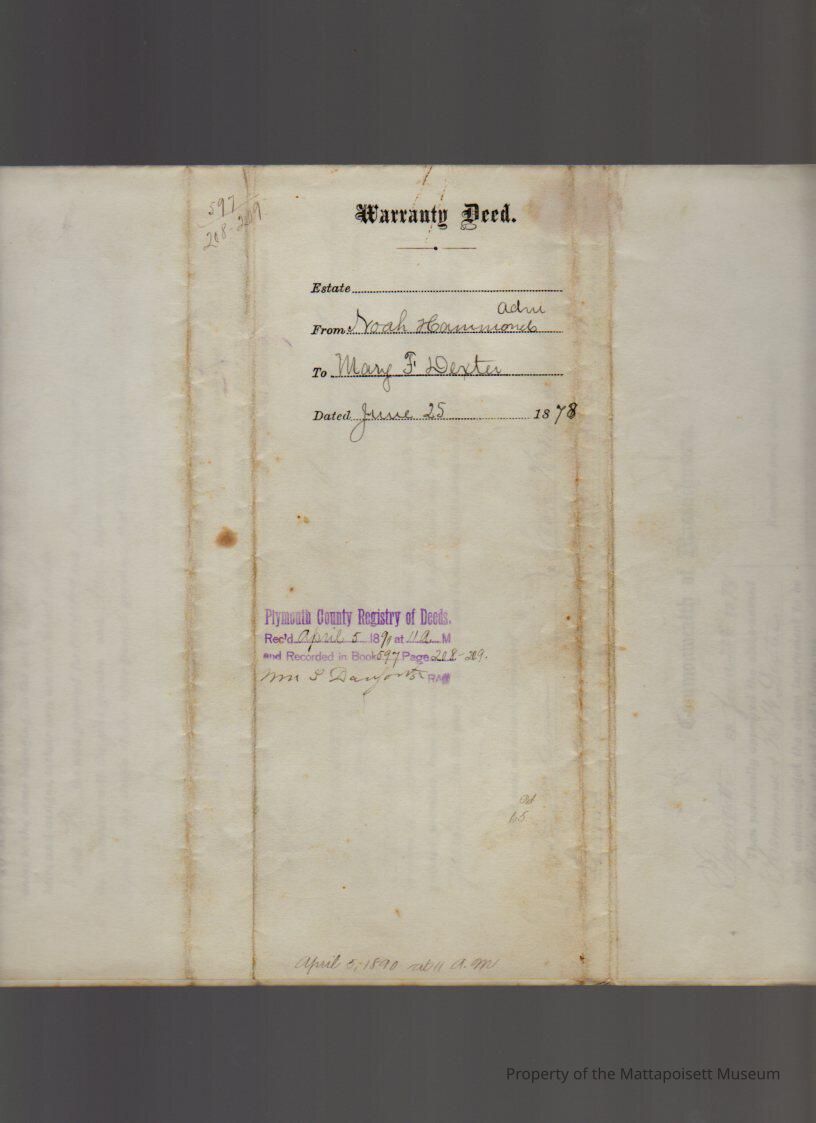 597
208-209
Warranty Deed.
Estate
adm
From Noah Hammond
To Mary F Dexter
Dated June 25 1878
Plymouth County Registry of Deeds.
Rec'd April 5 1890 at 11 A M
and Recorded in Book 597 Page 208-209.
Wm S Danforth
April 5, 1890 at 11 A.M
Property of the Mattapoisett Museum